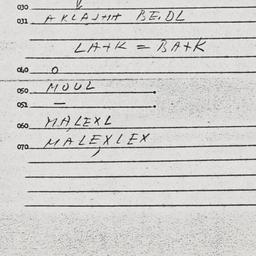 030
031 AKLAJTH BE.DL
LATK = BATK
040 O
050 MOUL .
052 — .
060 MALEXL
070 MALEXLEX